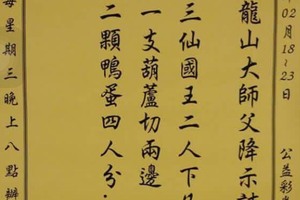 02月18~23日 公益彩
龍山大師父降示詩
三仙國王二人下
一支葫蘆切兩邊
二顆鴨蛋四人分.
每星期三晚上八點辦